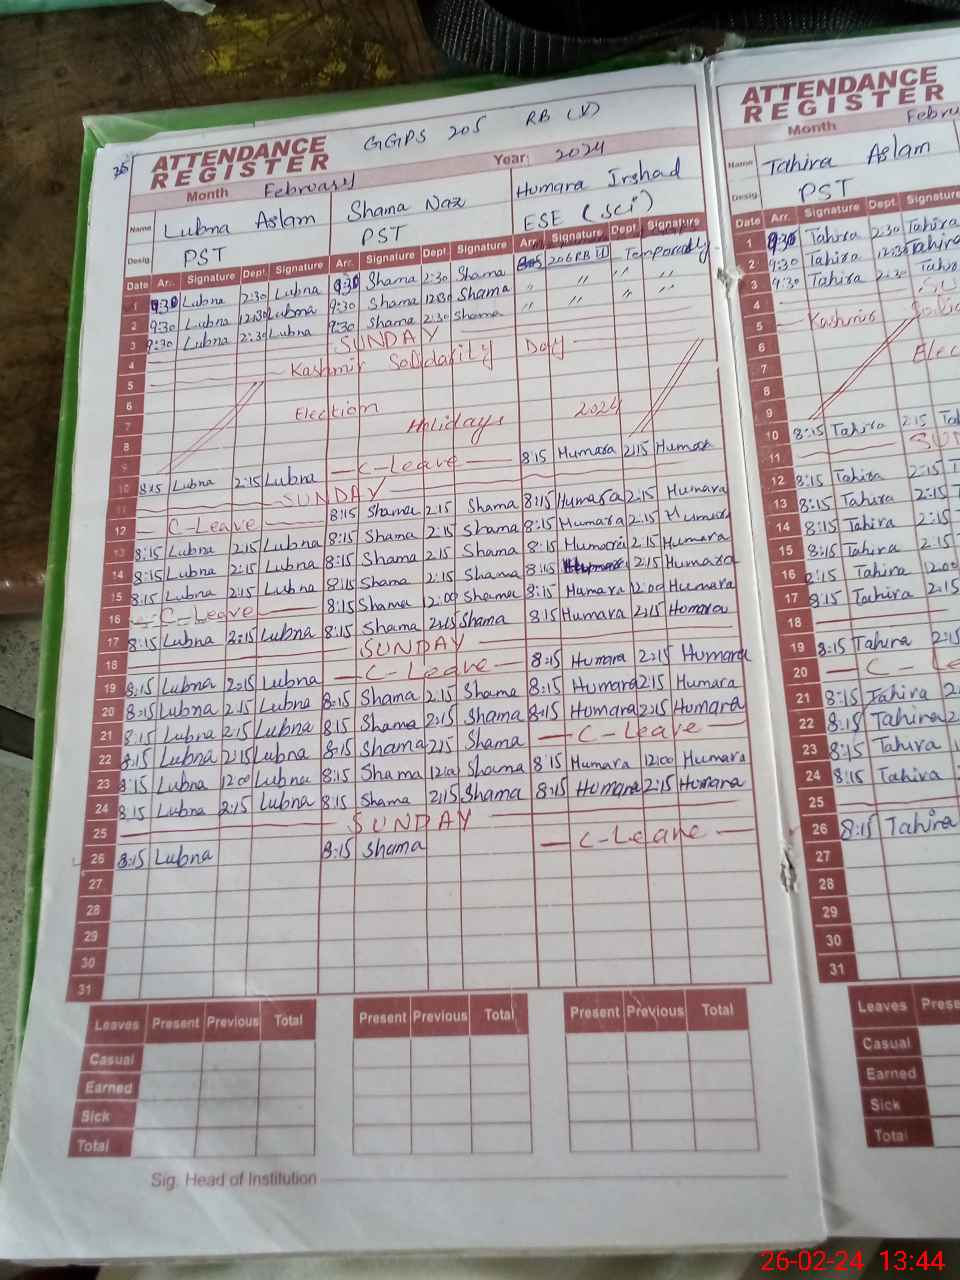 GGPS 205 RB (V)
ATTENDANCE
REGISTER
Month February
Year: 2024
Name Lubna Aslam Shama Naz Humara Irshad
Desig. PST PST ESE (Sci)
Date Arr. Signature Dept. Signature Arr. Signature Dept. Signature Arr. Signature Dept. Signature
1 9:30 Lubna 2:30 Lubna 9:30 Shama 2:30 Shama 206 RB Temporarily
2 9:30 Lubna 12:30 Lubna 9:30 Shama 12:30 Shama " " " "
3 9:30 Lubna 2:30 Lubna 9:30 Shama 2:30 Shama " " " "
4 SUNDAY
5 Kashmir Solidarity Day
6
7 Election Holidays 2024
8
9
10 8:15 Lubna 2:15 Lubna C-Leave 8:15 Humara 2:15 Humara
11 SUNDAY
12 C-Leave 8:15 Shama 2:15 Shama 8:15 Humara 2:15 Humara
13 8:15 Lubna 2:15 Lubna 8:15 Shama 2:15 Shama 8:15 Humara 2:15 Humara
14 8:15 Lubna 2:15 Lubna 8:15 Shama 2:15 Shama 8:15 Humara 2:15 Humara
15 8:15 Lubna 2:15 Lubna 8:15 Shama 2:15 Shama 8:15 Humara 2:15 Humara
16 C-Leave 8:15 Shama 12:00 Shama 8:15 Humara 12:00 Humara
17 8:15 Lubna 2:15 Lubna 8:15 Shama 2:15 Shama 8:15 Humara 2:15 Humara
18 SUNDAY
19 8:15 Lubna 2:15 Lubna C-Leave 8:15 Humara 2:15 Humara
20 8:15 Lubna 2:15 Lubna 8:15 Shama 2:15 Shama 8:15 Humara 2:15 Humara
21 8:15 Lubna 2:15 Lubna 8:15 Shama 2:15 Shama 8:15 Humara 2:15 Humara
22 8:15 Lubna 2:15 Lubna 8:15 Shama 2:15 Shama C-Leave
23 8:15 Lubna 12:00 Lubna 8:15 Shama 12:00 Shama 8:15 Humara 12:00 Humara
24 8:15 Lubna 2:15 Lubna 8:15 Shama 2:15 Shama 8:15 Humara 2:15 Humara
25 SUNDAY
26 8:15 Lubna 8:15 Shama C-Leave
27
28
29
30
31
Leaves Present Previous Total Present Previous Total Present Previous Total
Casual
Earned
Sick
Total
Sig. Head of Institution
ATTENDANCE
REGISTER
Month Febru
Name Tahira Aslam
Desig. PST
Date Arr. Signature Dept. Signature
1 9:30 Tahira 2:30 Tahira
2 9:30 Tahira 12:30 Tahira
3 9:30 Tahira 2:30 Tahi
4 SU
5 Kashmir Soli
6 Elec
7
8
9
10 8:15 Tahira 2:15 Ta
11 SU
12 8:15 Tahira 2:15 T
13 8:15 Tahira 2:15
14 8:15 Tahira 2:15
15 8:15 Tahira 2:15
16 8:15 Tahira 12:00
17 8:15 Tahira 2:15
18
19 8:15 Tahira 2:15
20 C- Le
21 8:15 Tahira 2:15
22 8:15 Tahira 2
23 8:15 Tahira 1
24 8:15 Tahira
25
26 8:15 Tahira
27
28
29
30
31
Leaves Prese
Casual
Earned
Sick
Total
26-02-24 13:44